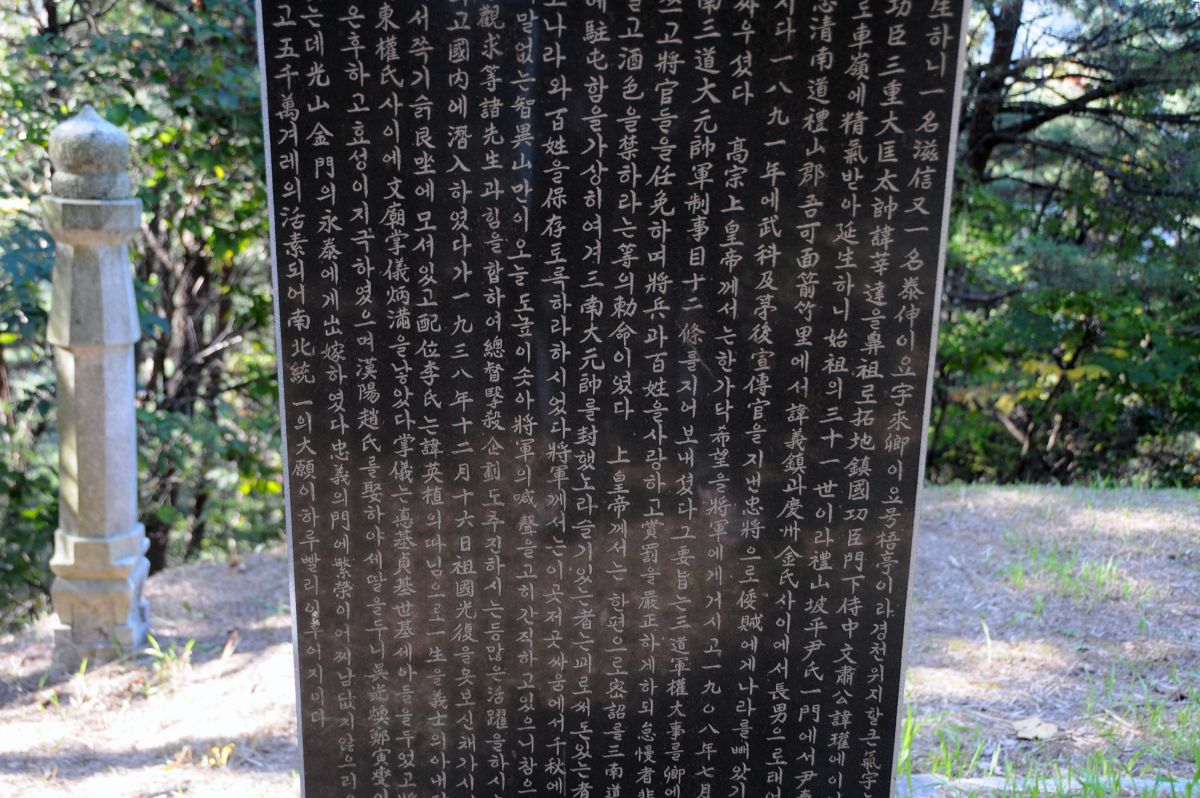 生하니一名滋信又一名泰伸이요字來卿이요号梧亭이라경천위지할큰氣宇
功臣三重大匡太帥諱莘達을鼻祖로拓地鎮國功臣門下侍中文肅公諱瓘에이
로車嶺에精氣받아延生하니始祖의三十一世이라禮山坡平尹氏一門에서尹
忠清南道禮山郡吾可面箭竹里에서諱義鎮과慶州金氏사이에서長男으로태여
시다一八九一年에武科及第後宣傳官을지낸忠將으로倭賊에게나라를빼앗기
싸우셨다 高宗上皇帝께서는한가닥希望을將軍에게거시고一九〇八年七月
南三道大元帥軍制事目十二條를지어보내셨다그要旨는三道軍權大事를卿에
쓰고將官들을任免하며將兵과百姓을사랑하고賞罰을嚴正하게하되怠慢者
말고酒色을禁하라는等의勅命이였다 上皇帝께서는한편으로密詔를三南道
에駐屯함을가상히여겨三南大元帥를封했노라슬기있는者는꾀로써돈있는者
나라와百姓을保存토록하라하시었다將軍께서는이곳저곳싸움에서千秋에
말없는智異山만이오늘도높이솟아將軍의喊聲을고히간직하고있으니참으
觀求等諸先生과힘을합하여總督擊殺企劃도추진하시는등많은活躍을하시
고國內에潛入하였다가一九三八年十二月十六日祖國光復을못보신채가시
서쪽기슭艮坐에모셔있고配位李氏는諱英植의따님으로一生을義士의아내
東權氏사이에文廟掌儀炳滿을낳았다掌儀는憙基貞基世基세아들을두었고
온후하고호성이지극하였으며漢陽趙氏를娶하야세딸을두니吳 煥鄭寅
는데光山金門의永泰에게出嫁하였다忠義의門에繁榮이어찌남답지않으리
고五千萬겨레의活素되어南北統一의大願이하루빨리이루어지이다